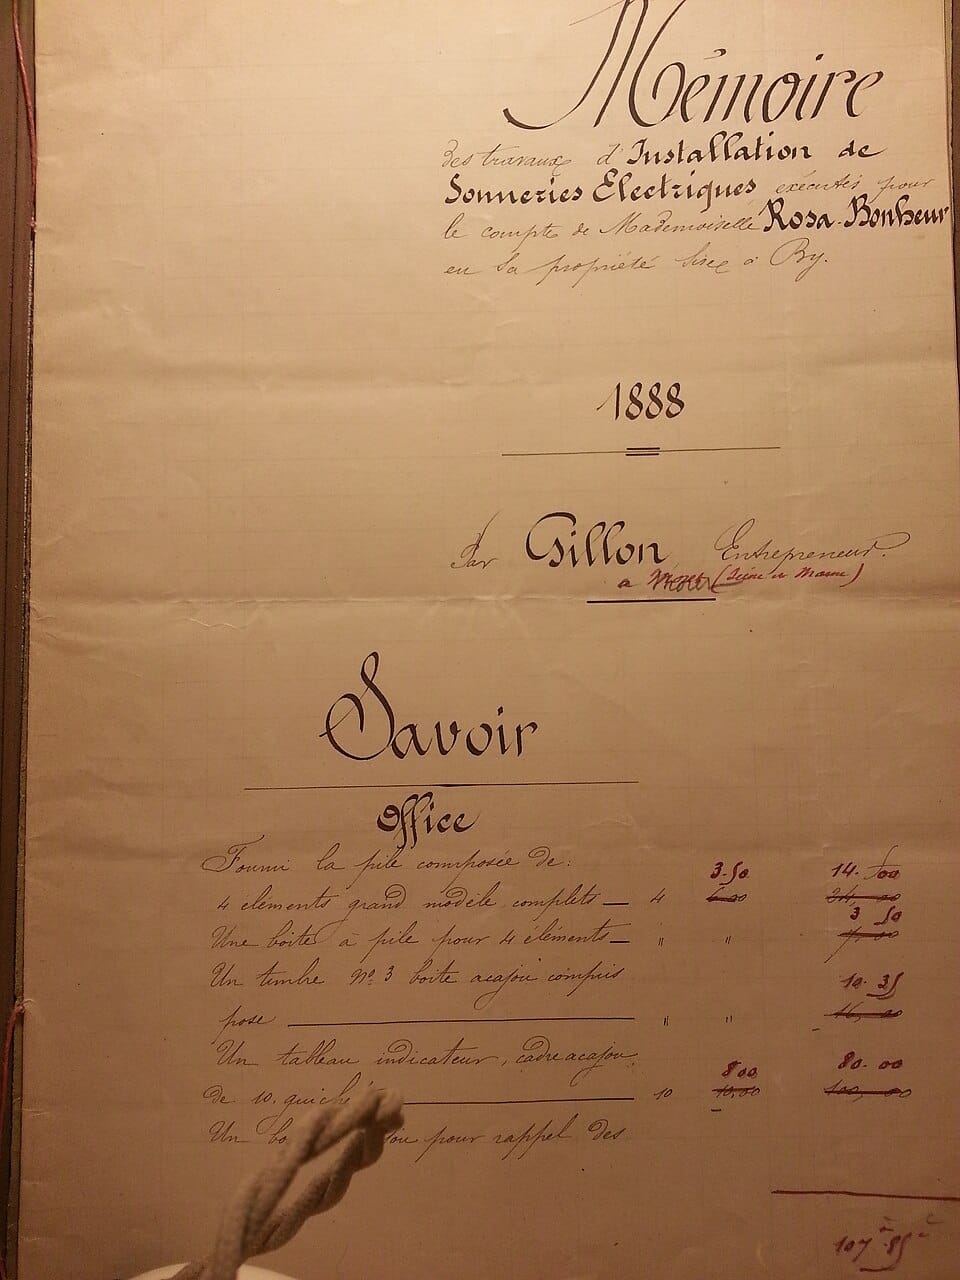 Mémoire
des travaux d'Installation de
Sonneries Electriques exécutés pour
le compte de Mademoiselle Rosa-Bonheur
en sa propriété sise à By.
1888
Par Gillon Entrepreneur.
a (Seine et Marne)
Savoir
Office
Fourni la pile composée de:
3.50 14.00
4 éléments grand modèle complets — 4 6.00 24,00
3 50
Une boîte à pile pour 4 éléments — " " 7.00
Un timbre No 3 boîte acajou compris 10.35
pose — " " 16,00
Un tableau indicateur, cadre acajou
8 00 80.00
de 10 guiché — 10 10,00 100,00
Un pour rappel des
107 85